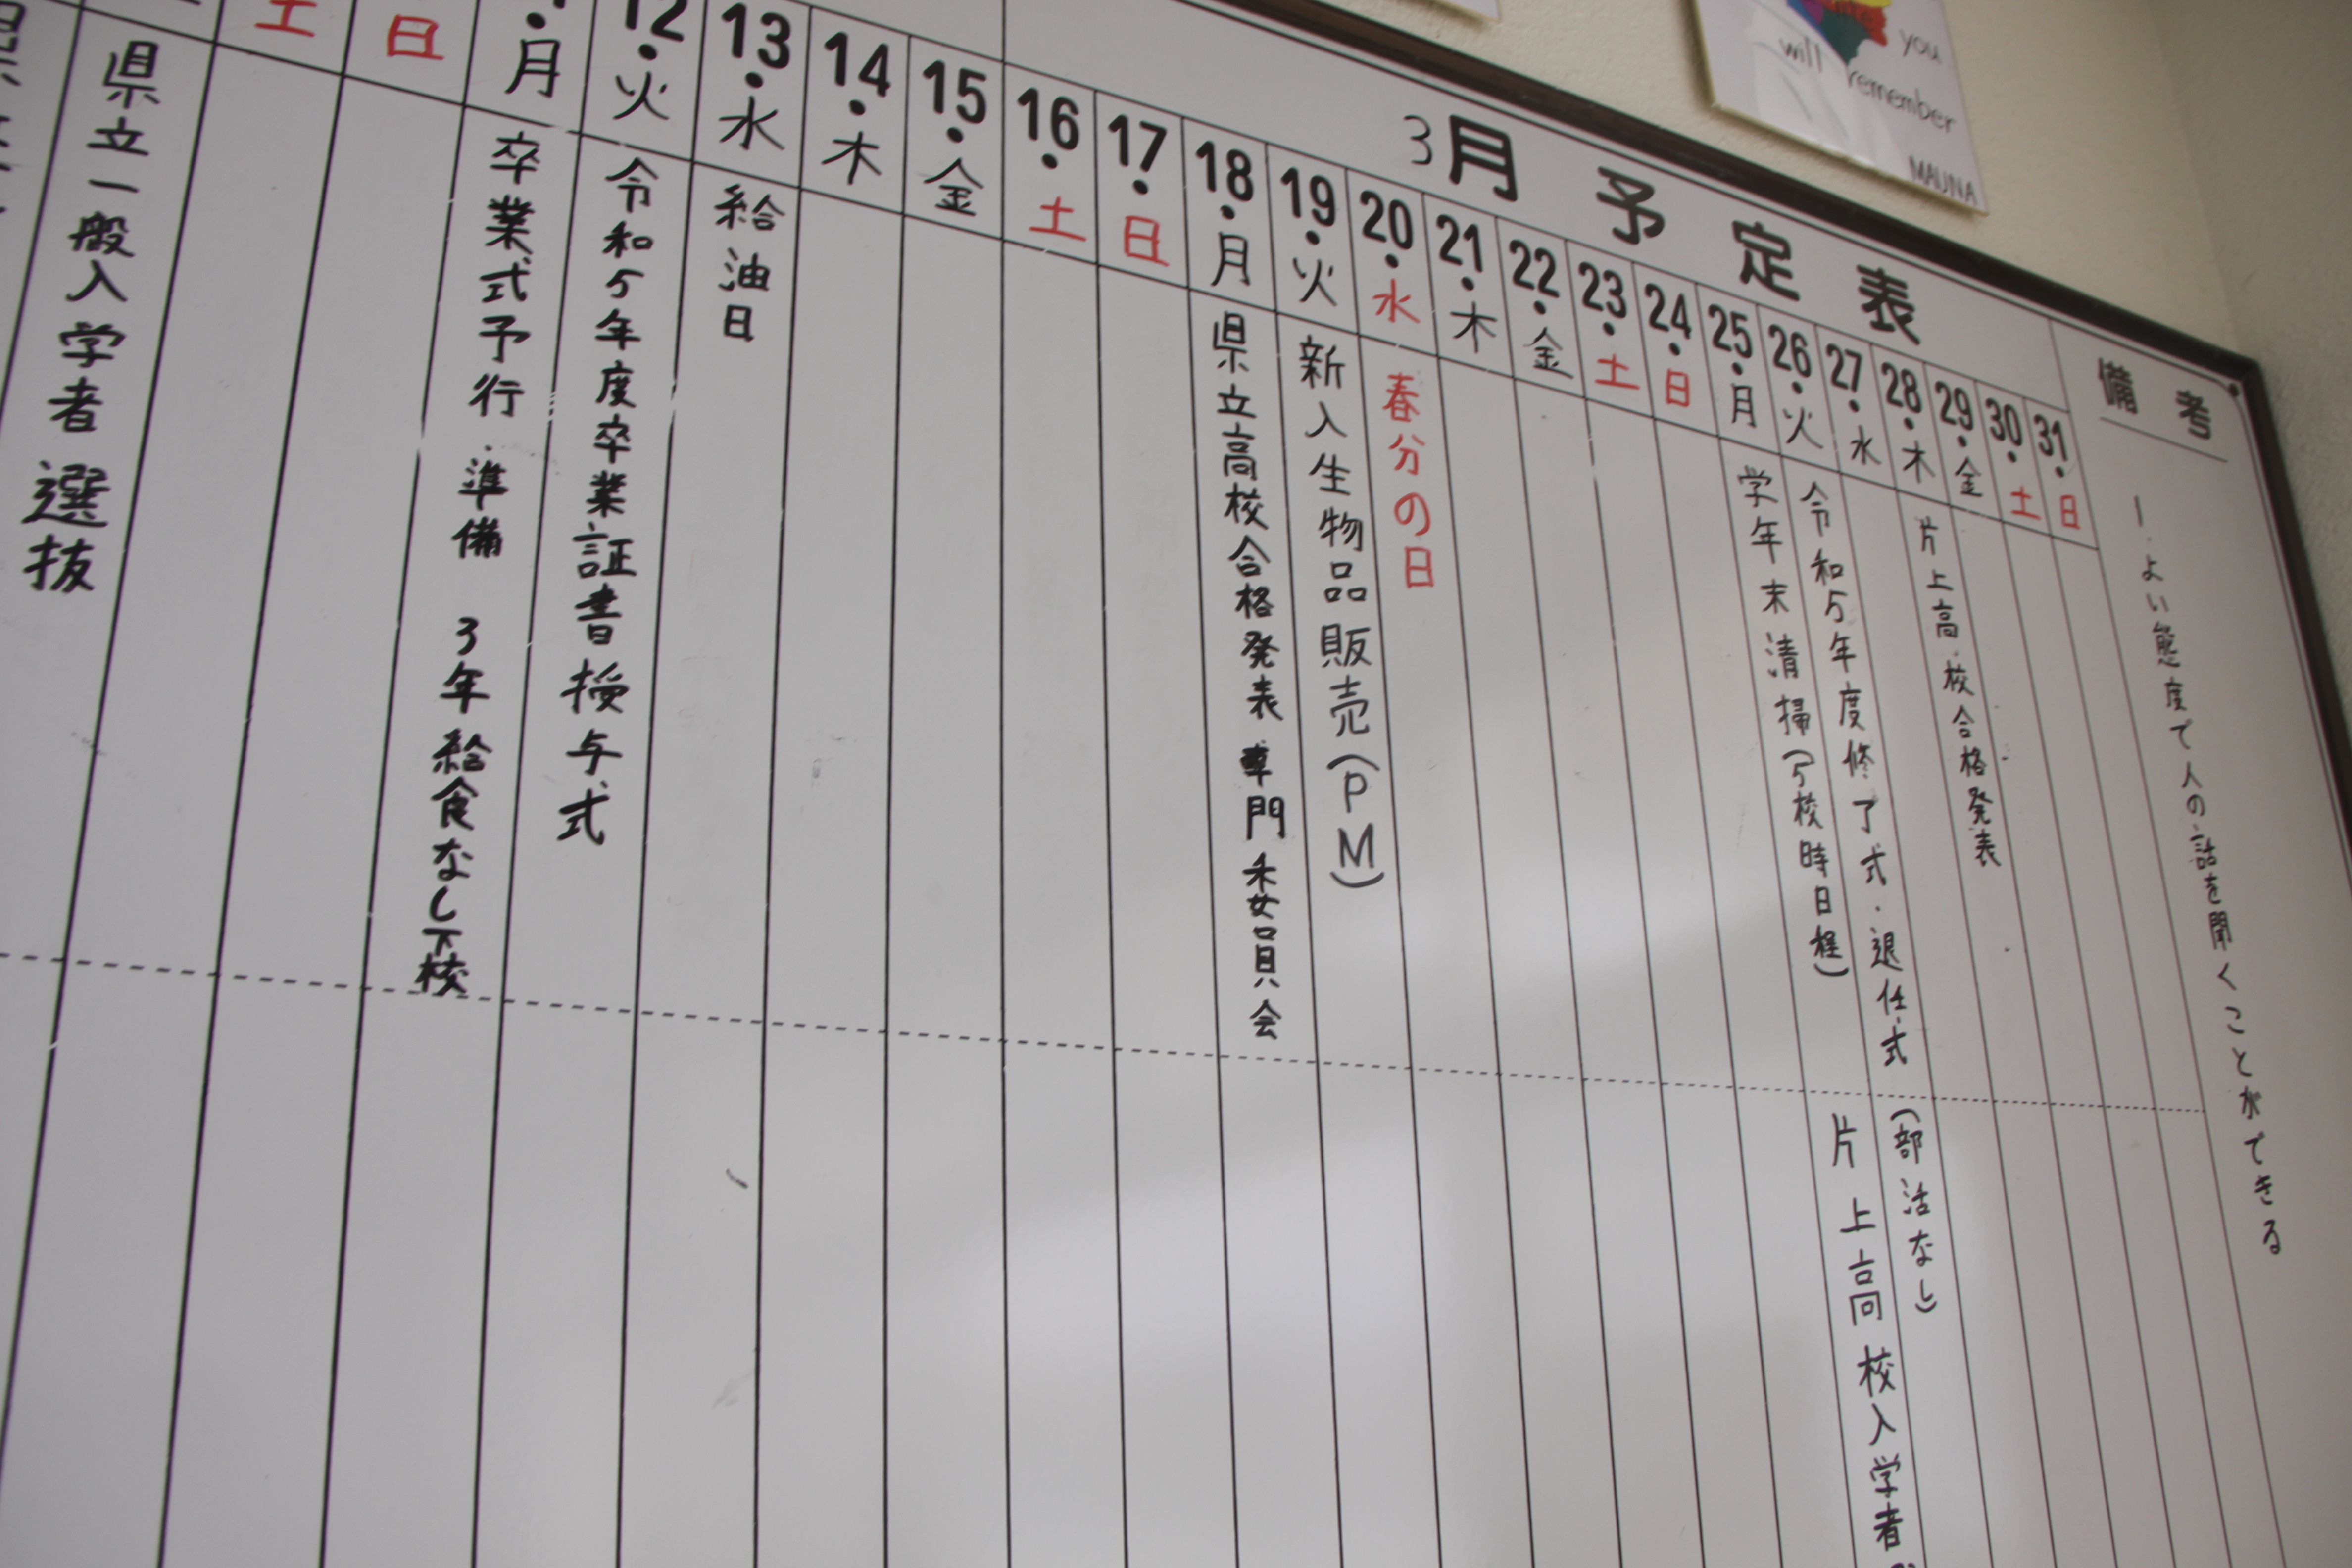 you
will remember
MAUNA
3月予定表
県立一般入学者選抜
土
日
・月 卒業式予行・準備 3年給食なし下校
12・火 令和5年度卒業証書授与式
13・水 給油日
14・木
15・金
16・土
17・日
18・月 県立高校合格発表 専門委員会
19・火 新入生物品販売(PM)
20・水 春分の日
21・木
22・金
23・土
24・日
25・月 学年末清掃(5校時日程) 片上高校入学者
26・火 令和5年度修了式・退任式 (部活なし)
27・水
28・木 片上高校合格発表
29・金
30・土
31・日
備考
1.よい態度で人の話を聞くことができる